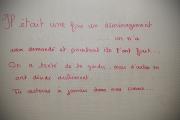 Il était une fois un déménagement
........ on n'a
rien demandé et pourtant ils l'ont fait...
On a tenté de te garder, mais d'autres en
ont décidé autrement.
Tu resteras à jamais dans nos cœurs...